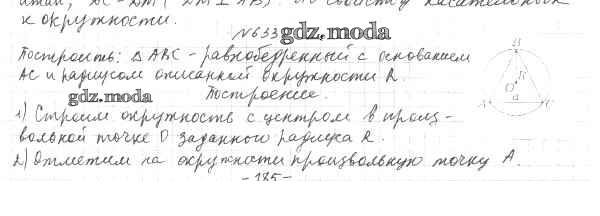 к окружности.
№633 gdz.moda
Построить: △ ABC - равнобедренный с основанием
AC и радиусом описанной окружности R.
gdz.moda Построение.
1) Строим окружность с центром в произ-
вольной точке O заданного радиуса R.
2) Отметим на окружности произвольную точку A.
- 185 -
B
R
O
a
A C